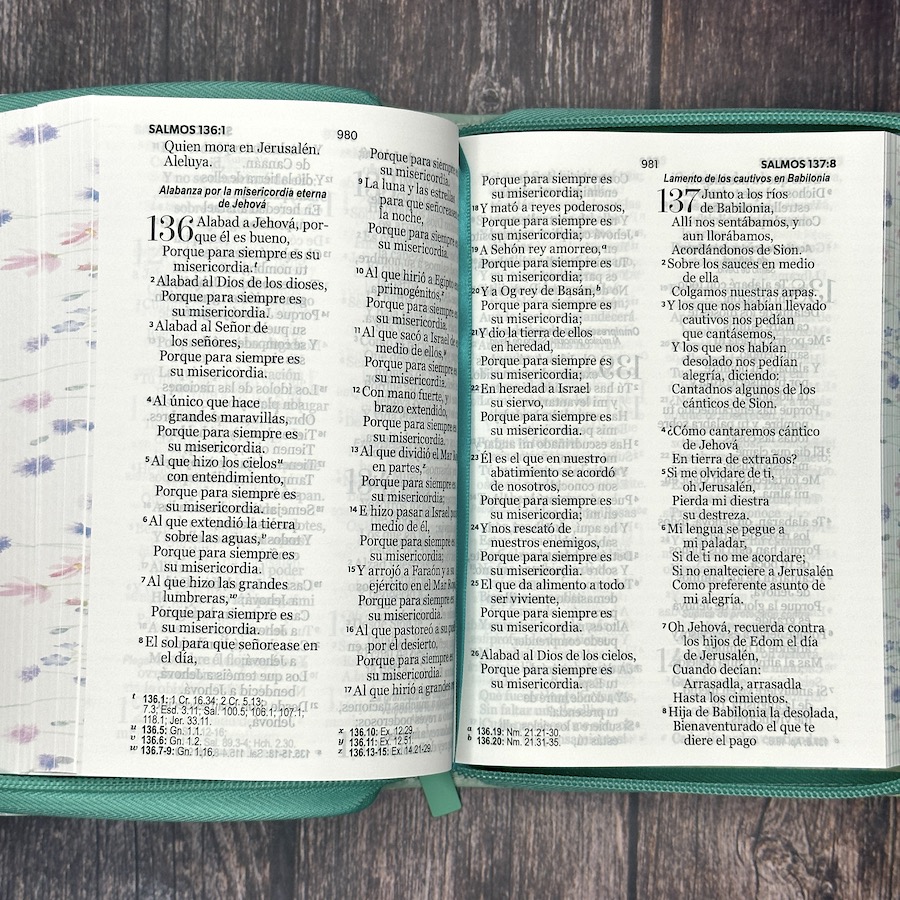 SALMOS 136:1
980
Quien mora en Jerusalén.
Aleluya.
Alabanza por la misericordia eterna
de Jehová
136 Alabad a Jehová, por-
que él es bueno,
Porque para siempre es su
misericordia.t
2 Alabad al Dios de los dioses,
Porque para siempre es
su misericordia.
3 Alabad al Señor de
los señores,
Porque para siempre es
su misericordia.
4 Al único que hace
grandes maravillas,
Porque para siempre es
su misericordia.
5 Al que hizo los cielosu
con entendimiento,
Porque para siempre es
su misericordia.
6 Al que extendió la tierra
sobre las aguas,v
Porque para siempre es
su misericordia.
7 Al que hizo las grandes
lumbreras,w
Porque para siempre es
su misericordia.
8 El sol para que señorease en
el día,
t 136.1: 1 Cr. 16.34; 2 Cr. 5.13;
7.3; Esd. 3.11; Sal. 100.5; 106.1; 107.1;
118.1; Jer. 33.11.
u 136.5: Gn. 1.1.
v 136.6: Gn. 1.2.
w 136.7-9: Gn. 1.16.
Porque para siempre
su misericordia.
9 La luna y las estrellas
para que señoreasen
la noche,
Porque para siempre
su misericordia.
10 Al que hirió a Egipto
primogénitos,x
Porque para siempre
su misericordia.
11 Al que sacó a Israel de
medio de ellos,y
Porque para siempre
su misericordia.
12 Con mano fuerte, y
brazo extendido,
Porque para siempre
su misericordia.
13 Al que dividió el Mar
en partes,z
Porque para siempre
su misericordia;
14 E hizo pasar a Israel por
medio de él,
Porque para siempre
su misericordia;
15 Y arrojó a Faraón y a su
ejército en el Mar
Porque para siempre
su misericordia.
16 Al que pastoreó a su
por el desierto,
Porque para siempre
su misericordia.
17 Al que hirió a grandes
x 136.10: Ex. 12.29.
y 136.11: Ex. 12.51.
z 136.13-15: Ex. 14.21-29.
981
SALMOS 137:8
Porque para siempre es
su misericordia;
18 Y mató a reyes poderosos,
Porque para siempre es
su misericordia;
19 A Sehón rey amorreo,a
Porque para siempre es
su misericordia;
20 Y a Og rey de Basán,b
Porque para siempre es
su misericordia;
21 Y dio la tierra de ellos
en heredad,
Porque para siempre es
su misericordia;
22 En heredad a Israel
su siervo,
Porque para siempre es
su misericordia.
23 Él es el que en nuestro
abatimiento se acordó
de nosotros,
Porque para siempre es
su misericordia;
24 Y nos rescató de
nuestros enemigos,
Porque para siempre es
su misericordia.
25 El que da alimento a todo
ser viviente,
Porque para siempre es
su misericordia.
26 Alabad al Dios de los cielos,
Porque para siempre es
su misericordia.
a 136.19: Nm. 21.21-30.
b 136.20: Nm. 21.31-35.
Lamento de los cautivos en Babilonia
137 Junto a los ríos
de Babilonia,
Allí nos sentábamos, y
aun llorábamos,
Acordándonos de Sion.
2 Sobre los sauces en medio
de ella
Colgamos nuestras arpas.
3 Y los que nos habían llevado
cautivos nos pedían
que cantásemos,
Y los que nos habían
desolado nos pedían
alegría, diciendo:
Cantadnos algunos de los
cánticos de Sion.
4 ¿Cómo cantaremos cántico
de Jehová
En tierra de extraños?
5 Si me olvidare de ti,
oh Jerusalén,
Pierda mi diestra
su destreza.
6 Mi lengua se pegue a
mi paladar,
Si de ti no me acordare;
Si no enalteciere a Jerusalén
Como preferente asunto de
mi alegría.
7 Oh Jehová, recuerda contra
los hijos de Edom el día
de Jerusalén,
Cuando decían:
Arrasadla, arrasadla
Hasta los cimientos.
8 Hija de Babilonia la desolada,
Bienaventurado el que te
diere el pago